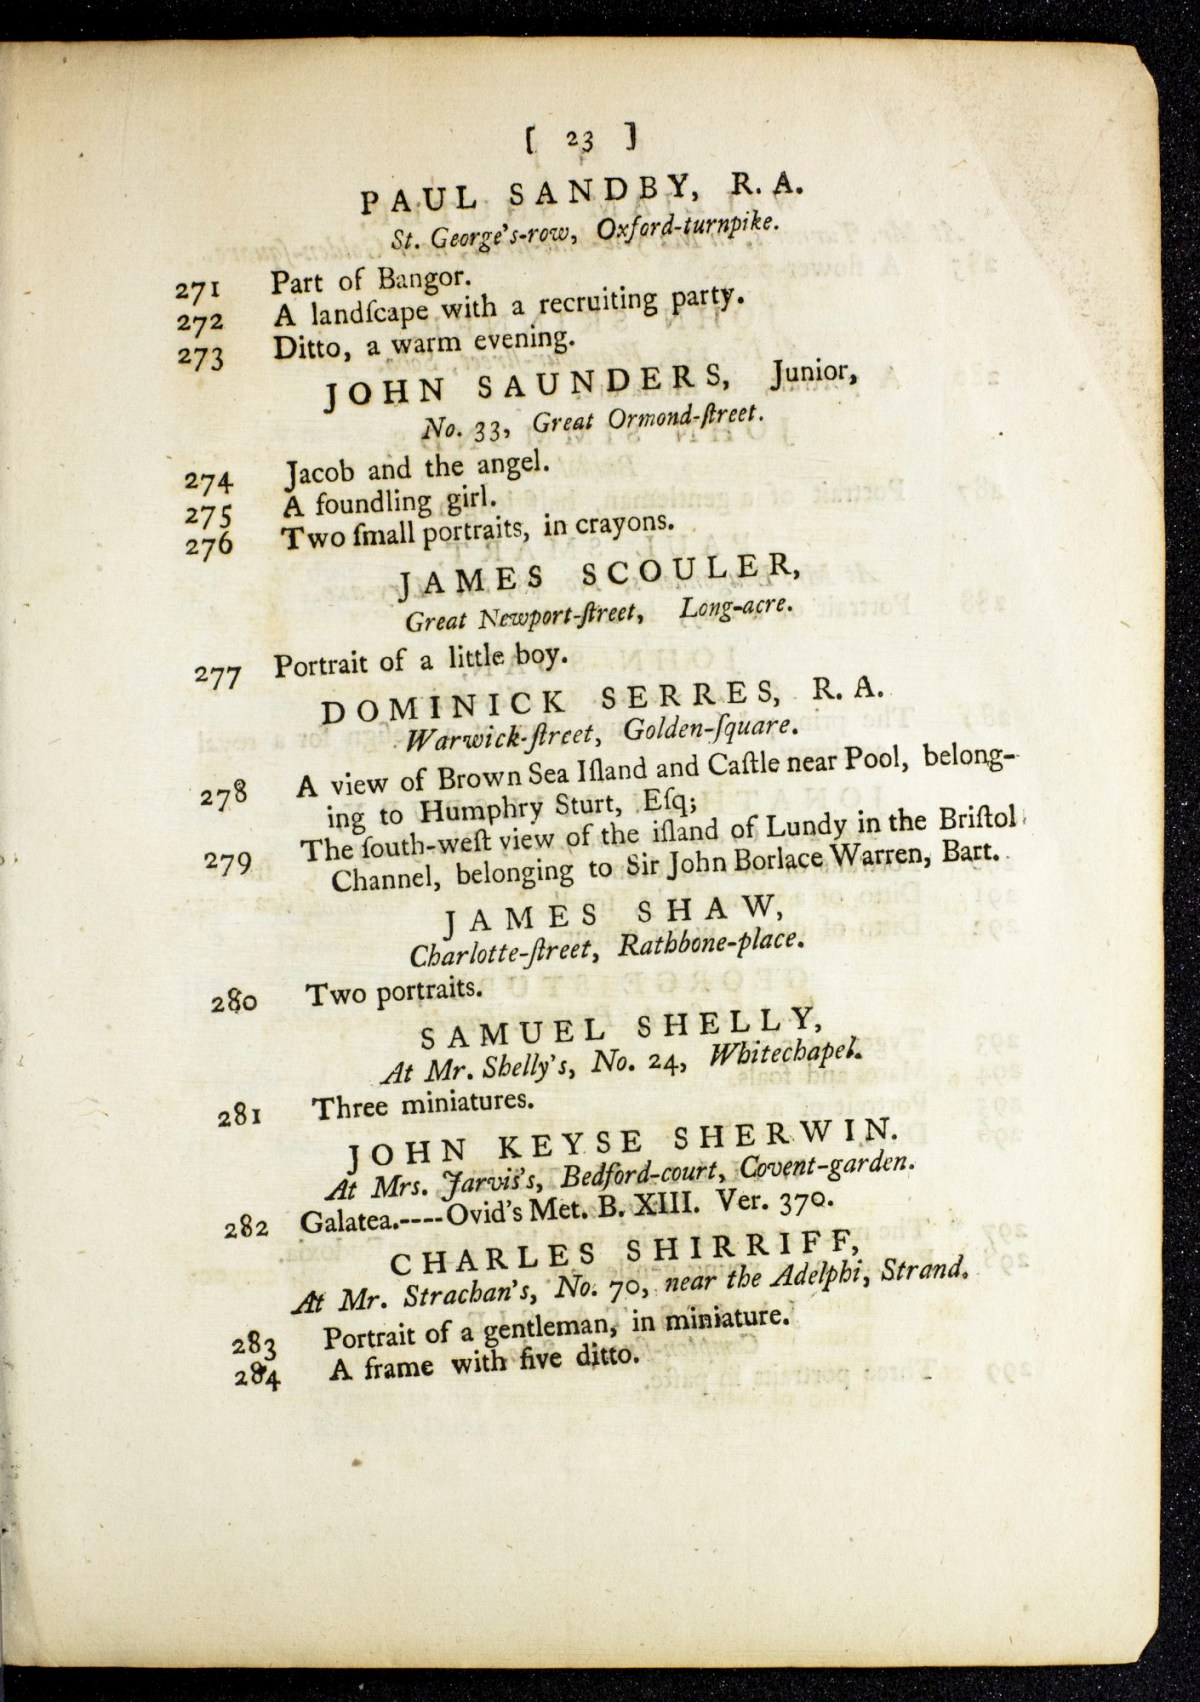 [ 23 ]
PAUL SANDBY, R. A.
St. George's-row, Oxford-turnpike.
271 Part of Bangor.
272 A landſcape with a recruiting party.
273 Ditto, a warm evening.
JOHN SAUNDERS, Junior,
No. 33, Great Ormond-ſtreet.
274 Jacob and the angel.
275 A foundling girl.
276 Two ſmall portraits, in crayons.
JAMES SCOULER,
Great Newport-ſtreet, Long-acre.
277 Portrait of a little boy.
DOMINICK SERRES, R. A.
Warwick-ſtreet, Golden-ſquare.
278 A view of Brown Sea Iſland and Caſtle near Pool, belong-
ing to Humphry Sturt, Eſq;
279 The ſouth-weſt view of the iſland of Lundy in the Briſtol
Channel, belonging to Sir John Borlace Warren, Bart.
JAMES SHAW,
Charlotte-ſtreet, Rathbone-place.
280 Two portraits.
SAMUEL SHELLY,
At Mr. Shelly's, No. 24, Whitechapel.
281 Three miniatures.
JOHN KEYSE SHERWIN.
At Mrs. Jarvis's, Bedford-court, Covent-garden.
282 Galatea.----Ovid's Met. B. XIII. Ver. 370.
CHARLES SHIRRIFF,
At Mr. Strachan's, No. 70, near the Adelphi, Strand.
283 Portrait of a gentleman, in miniature.
284 A frame with five ditto.